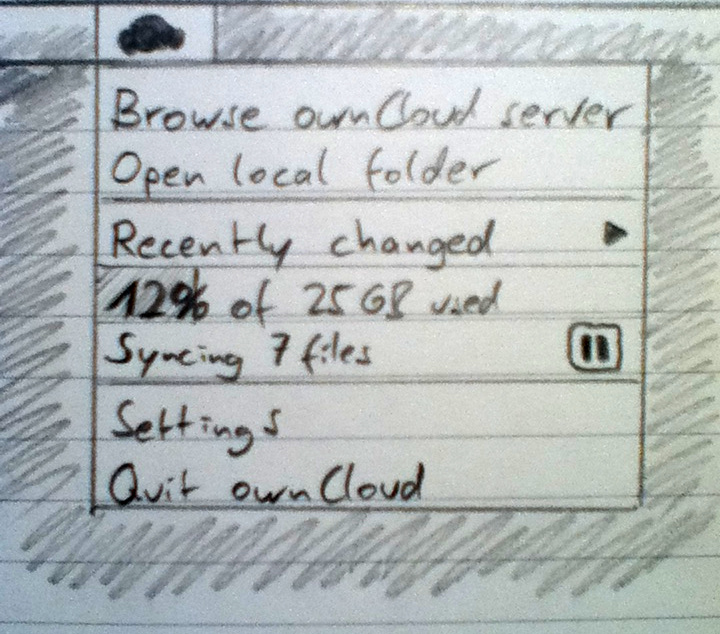 Browse ownCloud server
Open local folder
Recently changed
12% of 25 GB used
Syncing 7 files
Settings
Quit ownCloud